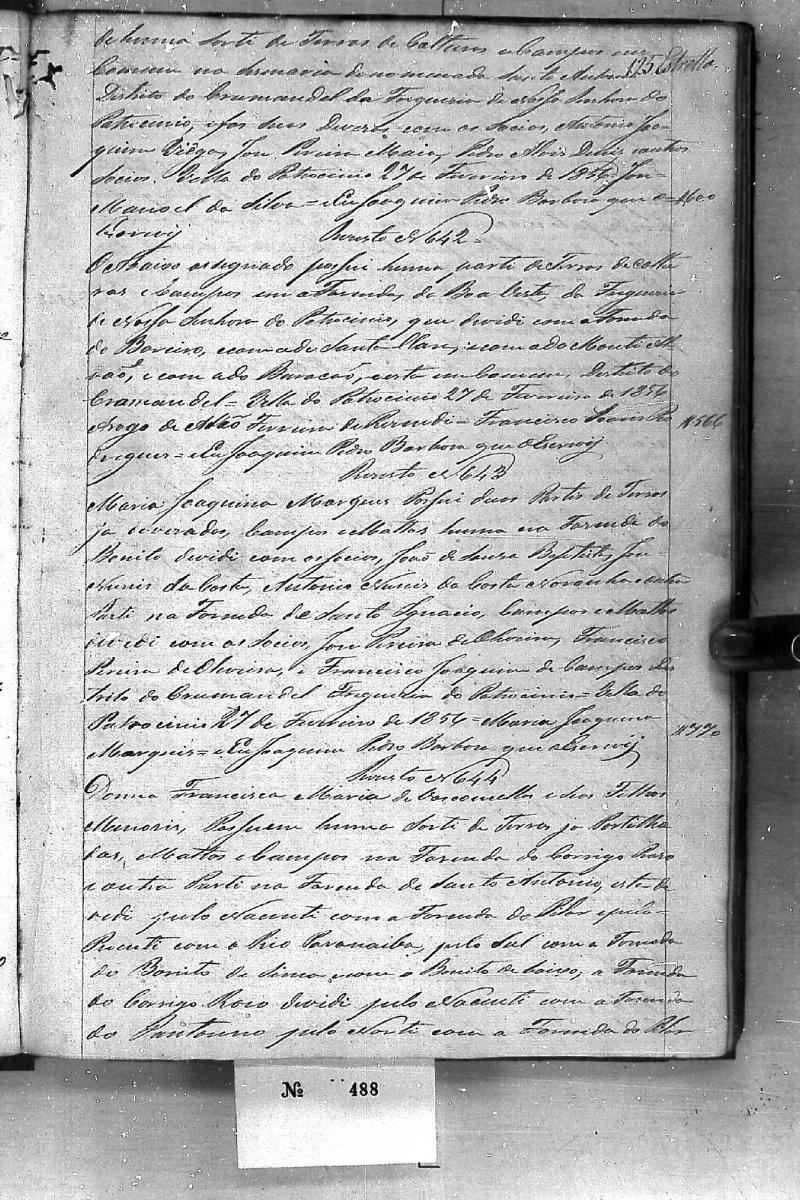 de huma sorte de Terras de Culturas e Campos em
Comum na denominada Santo Antonio
125 Estrella
Districto do Crumandel da Freguesia de Nossa Senhora do
Patrocinio, e os seus com os Socios Antonio Joa-
quim Jose Pereira Maia, Pedro Alves outros
Socios. Villa do Patrocinio 27 de Fevereiro de 1856 Jose
Manoel da Silva = Eu Joaquim Pedro Barbosa que o es-
crevij
Nº 642
O Abaixo assignado possui huma parte de Terras de cultu
ras e Campos em a Fazenda da Boa Vista, da Freguesia
de Nossa Senhora do Patrocinio, que devidi com a Fazenda
do Barreiro, e com a de Santa e com a do Monte Al
vão, e com a do Buracão, e esta em Comum, Destrito do
Crumandel = Villa do Patrocinio 27 de Fevereiro de 1856
Arogo de Ferreira de = Francisco Ro
drigues = Eu Joaquim Pedro Barbosa que o Escrevij
Nº 643
Maria Joaquina Marques Possui duas Partes de Terras
ja Campos e Mattos huma na Fazenda do
Bonito devidi com os Socios, João de Souza Baptista, Jose
Nunes da Costa, Antonio Nunes da Costa Noronha e outra
Parte na Fazenda de Santo Ignacio, Campos e Mattos
devidi com os Socios, Jose Pereira de Oliveira, Francisco
Pereira de Oliveira, e Francisco Joaquim de Campos Des
trito do Crumandel Freguesia do Patrocinio = Villa do
Patrocinio 27 de Fevereiro de 1856 = Maria Joaquina
Marques = Eu Joaquim Pedro Barbosa que o Escrevij
Nº 644
Donna Francisca Maria de Vasconcellos e seos Filhos
Menores, Possuem huma Sorte de Terras ja Partilha
das, Mattos e Campos na Fazenda do Corrigo Raso
e outra Parte na Fazenda de Santo Antonio, esta de
vedi pelo Nacente com a Fazenda do Pilar e pelo
Poente com o Rio Paranaiba, pelo Sul com a Fazenda
do Bonito de Sima e com o Bonito de baixo, a Fazenda
do Corrigo Raso devidi pelo Nacente com a Fazenda
do Pantanno pelo Norte com a Fazenda do Pilar
Nº 488